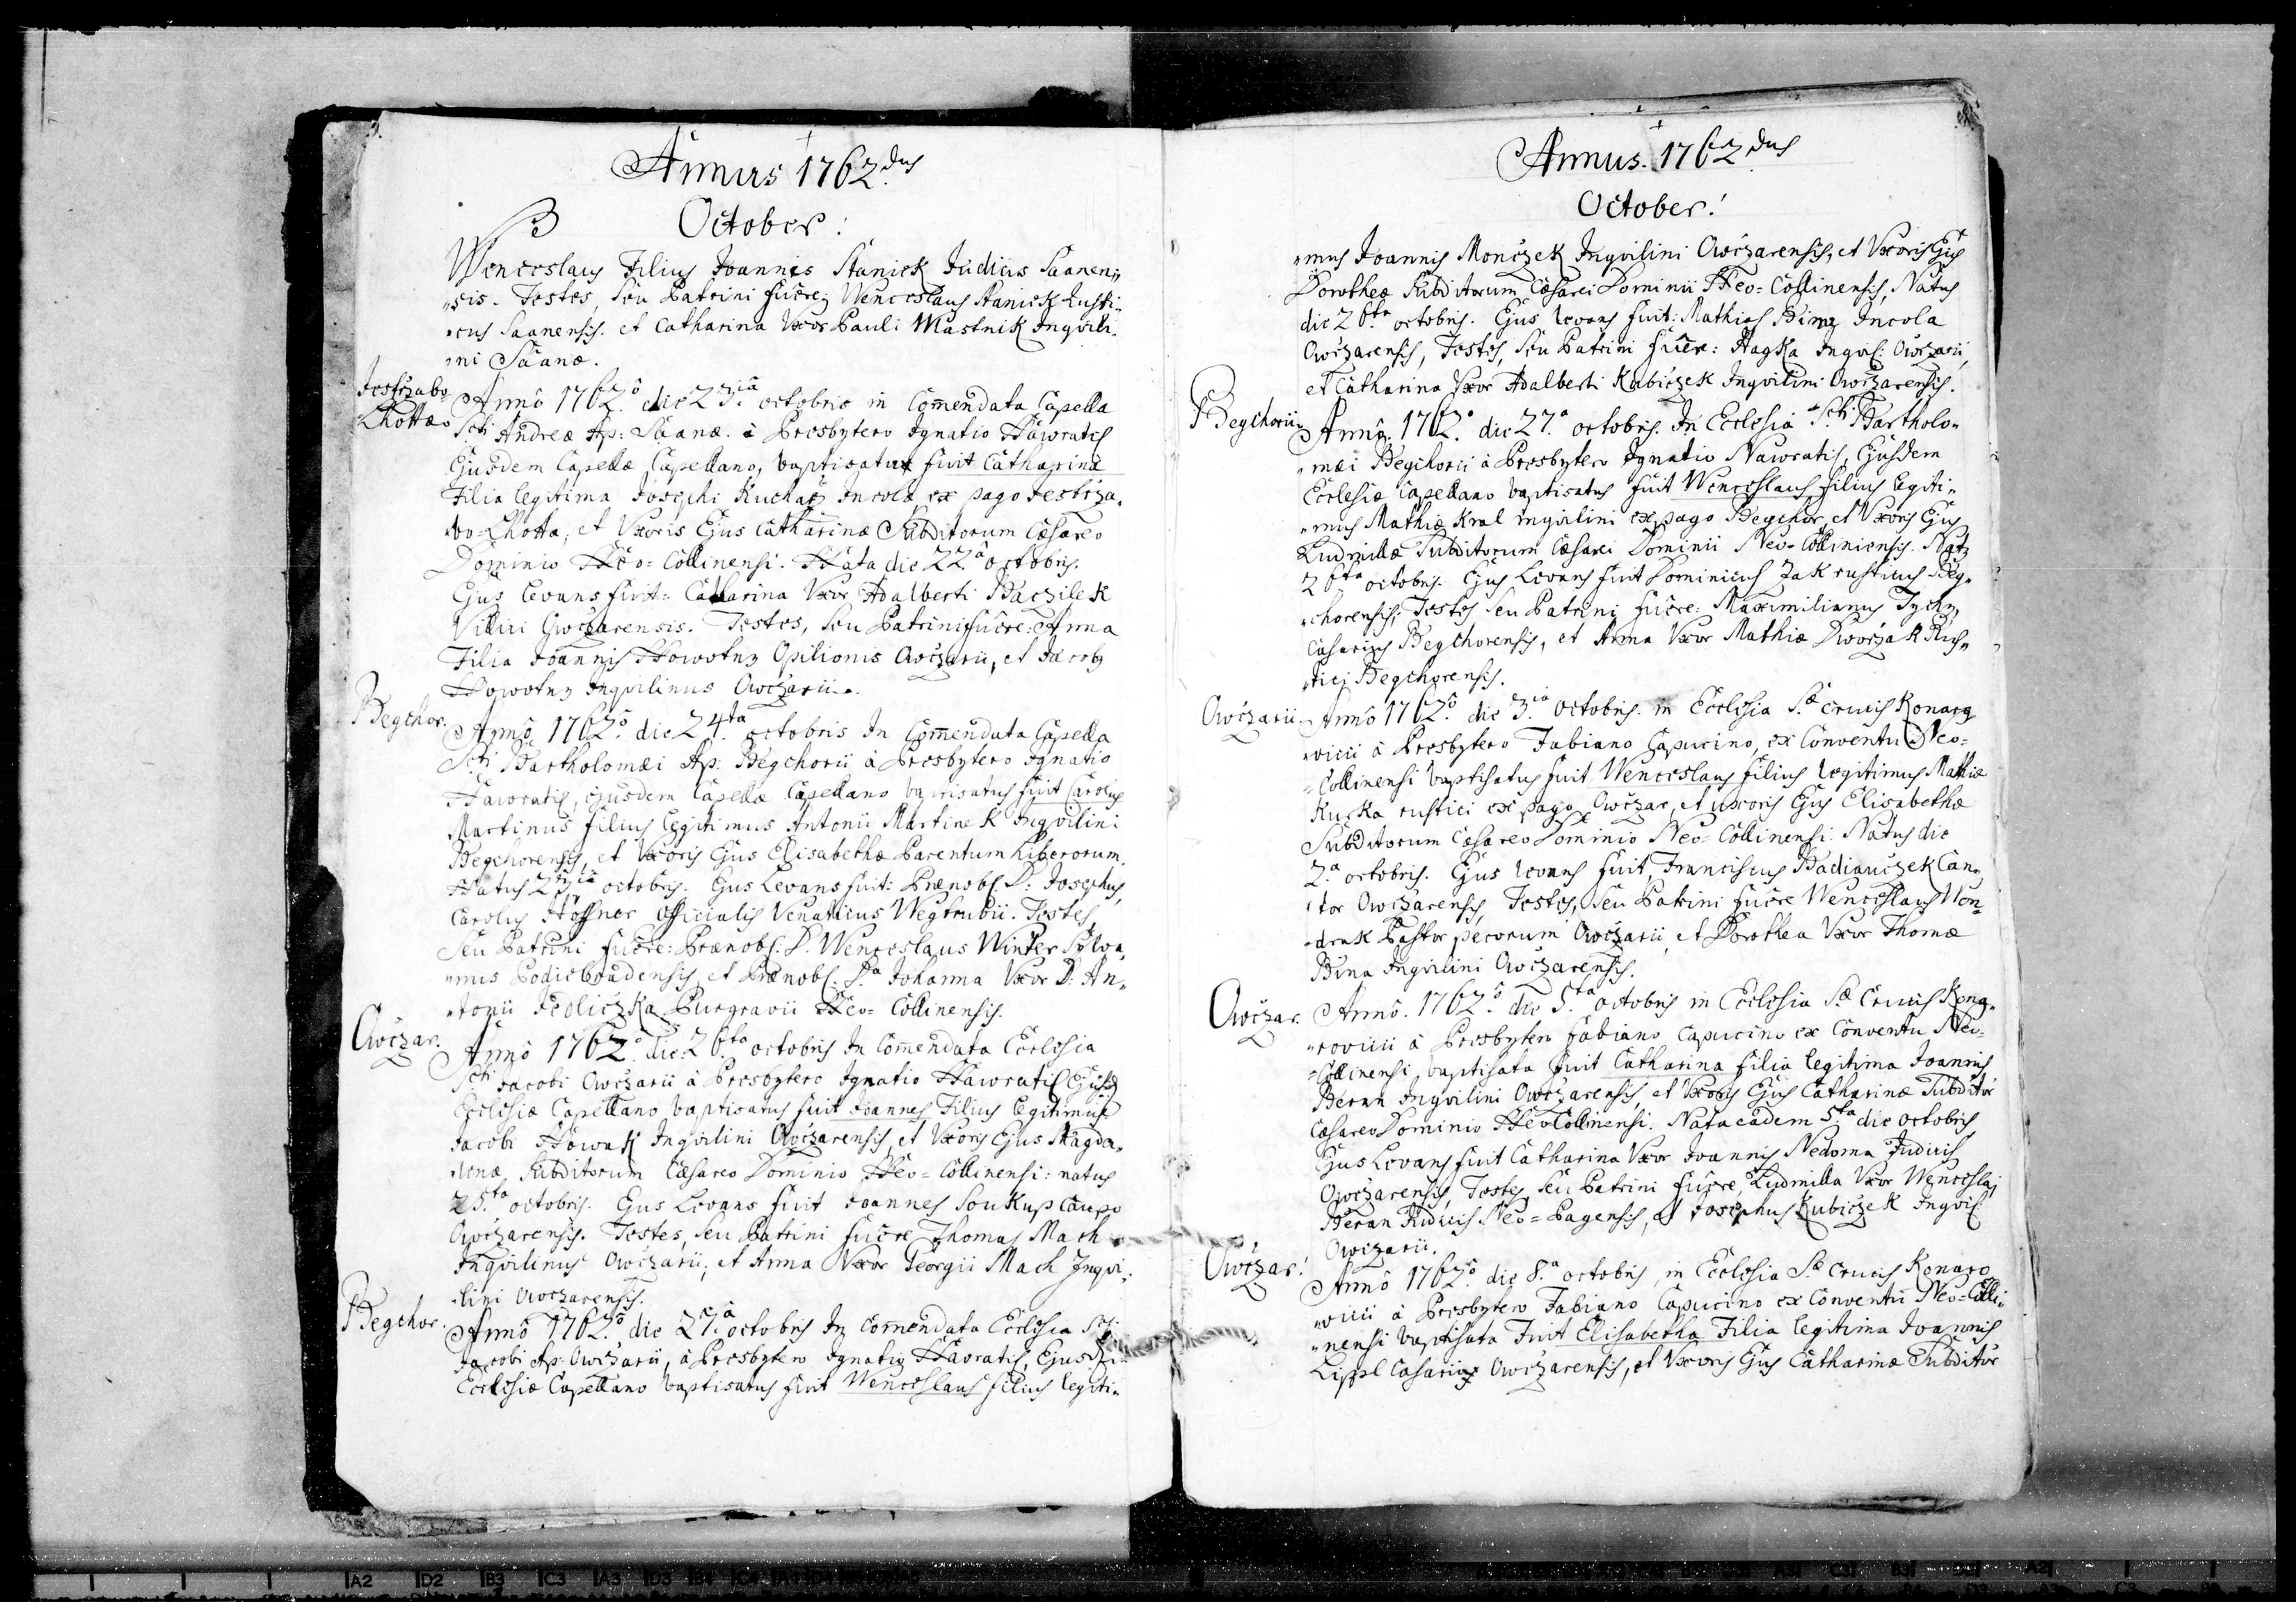 Annus 1762dus
October:
Wenceslaus Filius Joannis Stanick Judicis Saanen„
„sis. Testes, seu Patrini fuêre Wenceslaus Stanick Rusti„
„cus Saanensis. et Catharina Uxor Pauli Mastnik Inqvili„
„ni Säanæ.
Jestrzabo
Lhotta
Annô 1762ô die 23iâ octobris in Com̄endata Capella
Scti Andreæ Ap: Säanæ. à Presbytero Ignatio Nawratil
Ejusdem Capellæ Capellano, baptisata fuit Catharina
Filia legitima Josephi Kucharz Incolæ ex pago Jestrza„
„bo-Lhotta, et Uxoris Ejus Catharinæ Subditorum Cæsareo
Dominio Neo=Collinensi. Nata die 22â octobris.
Ejus levans fuit: Catharina Uxor Adalberti Baczilek
Villici Owczarensis. Testes, seu Patrini fuêre: Anna
Filia Joannis Nowotny Opilionis Owczarii, et Jacoby
Nowotny Inqvilinus Owczarii.
Begchor.
Annô 1762ô die 24ta octobris In Com̄endata Capella
Scti Bartholomæi Ap: Begchorii à Presbytero Ignatio
Nawratil, ejusdem Capellæ Capellano baptisatus fuit Carolus
Martinus filius legitimus Antonii Martinek Inqvilini
Begchorensis, et Uxoris Ejus Elisabethæ Parentum Liberorum.
Natus 23iâ octobris. Ejus Levans fuit: Prænobl. D: Josephus
Carolus Höffner Officialis Venaticus Wegtrubii. Testes,
Seu Patrini fuêre: Prænobl. D. Wenceslaus Winter Sylva„
„nus Podiebradensis, et Prænobl: Da Johanna Uxor D: An„
„tonii Jedliczka Purgravii Neo=Collinensis.
Owczar.
Annô 1762ô die 26ta octobris In Com̄endata Ecclesia
Scti Jacobi Owczarii à Presbytero Ignatio Nawratil Ejusd
Ecclesiæ Capellano baptisatus fuit Joannes Filius legitimus
Jacobi Nowak Inqvilini Owczarensis, et Uxoris Ejus Magda„
„lenæ, Subditorum Cæsareo Dominio Neo=Collinensi: natus
25ta octobris. Ejus Levans fuit Joannes Soukup Caupo
Owczarensis. Testes, seu Patrini fuêre Thomas Mach
Inqvilinus Owczarii, et Anna Uxor Georgii Mach Inqvi„
„lini Owczarensis.
Begchor.
Annô 1762ô die 27â octobris In Com̄endata Ecclesia Scti
Jacobi Ap: Owczarii, à Presbytero Ignatio Nawratil, Ejusd:
Ecclesiæ Capellano baptisatus fuit Wenceslaus filius legiti„
Annus. 1762dus
October!
„mus Joannis Monczek Inqvilini Owczarensis, et Uxoris Ejus
Dorotheæ Subditorum Cæsarei Dominii Neo=Collinensis, Natus
die 26ta octobris. Ejus levans fuit: Mathias Bina Incola
Owczarensis, Testes, seu Patrini fuêre: Hagka Inqvil: Owczarii,
et Catharina Uxor Adalberti Kubiczek Inqvilini Owczarensis.
Begchorii
Annô. 1762ô die 27a octobris. In Ecclesia Scti Bartholo„
„mæi Begchorii à Presbytero Ignatio Nawratil, Ejusdem
Ecclesiæ Capellano baptisatus fuit Wenceslaus filius legiti„
„mus Mathiæ Kral inqvilini ex pago Begchor, et Uxoris Ejus
Ludmillæ Subditorum Cæsarei Dominii Neo-Colliniensis. Natus
26ta octobris. Ejus Levans fuit Dominicus Jak rusticus Beg„
„chorensis, Testes seu Patrini fuêre: Maximilianus Tichy,
Casarius Begchorensis, et Anna Uxor Mathiæ Dworzak Rus„
„tici Begchorensis.
Owczarii
Annô 1762ô die 3iâ octobris. in Ecclesia S.æ Crucis Konaro
„vicii à Presbytero Fabiano Capucino, ex Conventu Neo=
=Collinensi baptisatus fuit Wenceslaus filius legitimus Mathiæ
Kurka rustici ex pago Owczar, et uxoris Ejus Elisabethæ
Subditorum Cæsareo Dominio Neo=Collinensi. Natus die
2.a octobris. Ejus levans fuit, Franciscus Hadianczek Can„
„tor Owczarensis, Testes, seu Patrini fuêre Wenceslaus Won„
„drak Pastor pecorum Owczarii, et Dorothea Uxor Thomæ
Bina Inqvilini Owczarensis.
Owczar.
Annô. 1762ô die 5ta octobris in Ecclesia S.æ Crucis Kona„
„rovicii à Presbytero Fabiano Capucino ex Conventu Neo=
=Collinensi, baptisata fuit Catharina filia legitima Joannis
Beran Inqvilini Owczarensis, et Uxoris Ejus Catharinæ Subditor
Cæsareo Dominio Neo Collinensi. Nata eadem 5ta die octobris
Ejus Levans fuit Catharina Uxor Joannis Nedoma Judicis
Owczarensis, Testes, seu Patrini fuêre, Ludmilla Uxor Wenceslai
Beran Judicis Neo=Pagensis, et Josephus Kubiczek Inqvil
Owczarii.
Owczar!
Annô 1762ô die 8.a octobris, in Ecclesia S.æ Crucis Konaro
„vicii à Presbytero Fabiano Capucino ex Conventu Neo=Colli„
„nensi baptisata Fuit Elisabetha Filia legitima Joannis
Lippl Casarii Owczarensis, et Uxoris Ejus Catharinæ Subditor